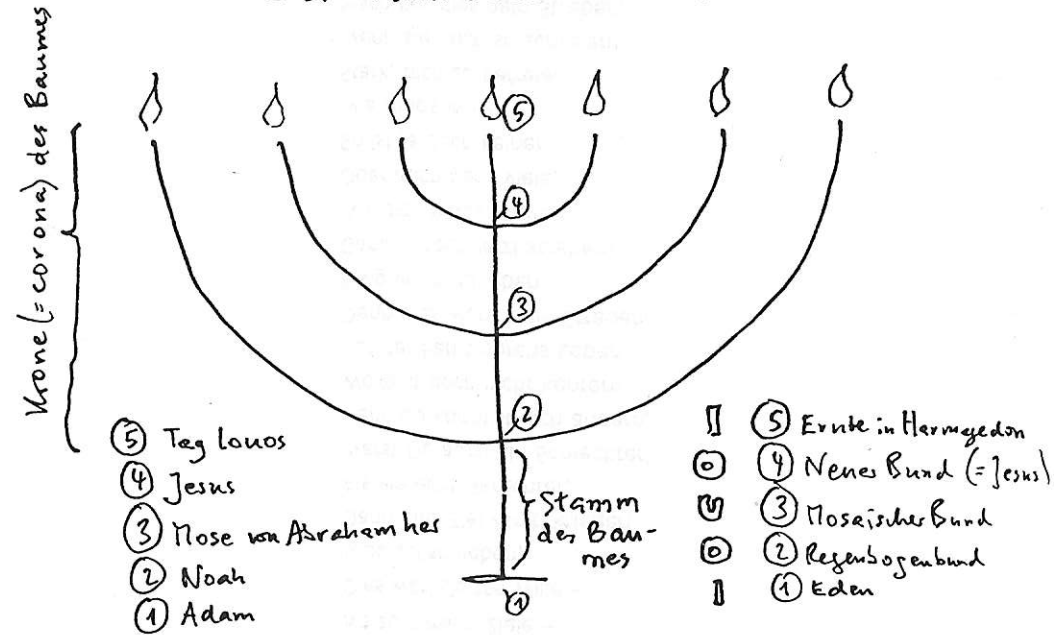 Krone (= corona) des Baumes
⑤
④
③
②
①
Stamm
des Bau-
mes
⑤ Tag Iouos
④ Jesus
③ Mose von Abraham her
② Noah
① Adam
⑤ Ernte in Harmagedon
④ Neuer Bund (= Jesus)
③ Mosaischer Bund
② Regenbogenbund
① Eden